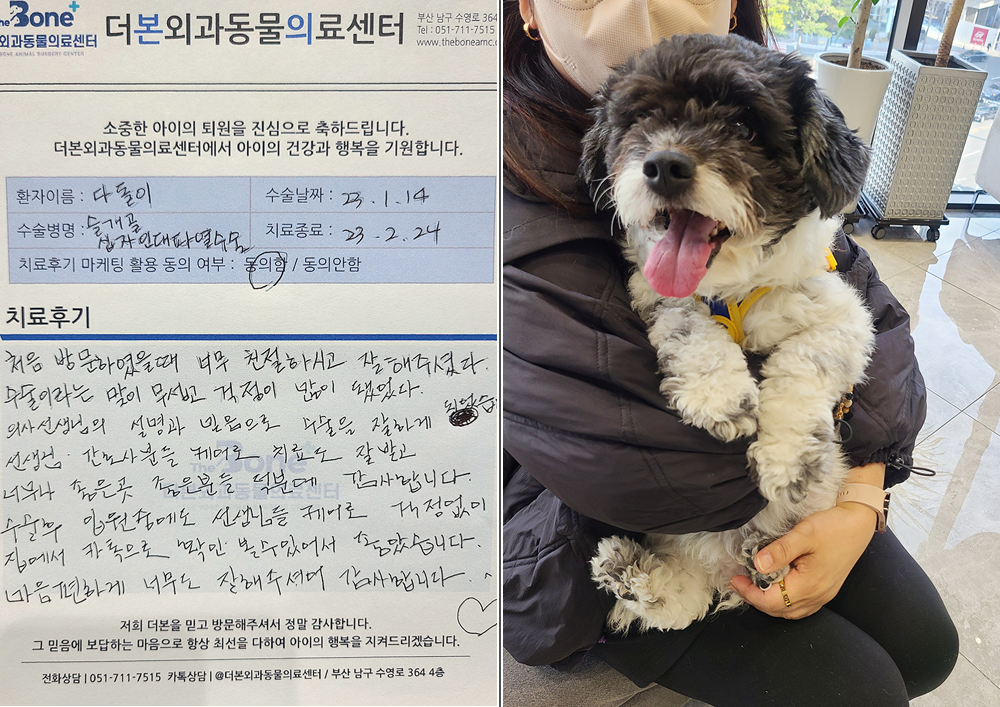 The Bone+
더본외과동물의료센터
THE BONE ANIMAL SURGERY CENTER
더본외과동물의료센터
부산 남구 수영로 364
Tel : 051-711-7515
www.theboneamc.c
소중한 아이의 퇴원을 진심으로 축하드립니다.
더본외과동물의료센터에서 아이의 건강과 행복을 기원합니다.
환자이름 : 다둘이 수술날짜 : 23.1.14
수술병명 : 슬개골 십자인대파열수술 치료종료 : 23.2.24
치료후기 마케팅 활용 동의 여부 : 동의함 / 동의안함
치료후기
처음 방문하였을때 너무 친절하시고 잘해주셨다.
수술이라는 말이 무섭고 걱정이 많이 됐었다.
의사선생님의 설명과 믿음으로 수술을 잘하게 되었습
선생님, 간호사분들 케어로 치료도 잘받고
너무나 좋은곳 좋은분들 덕분에 감사합니다.
수술후 입원중에도 선생님들 케어로 걱정없이
집에서 카톡으로 확인 볼수있어서 좋았습니다.
마음편하게 너무도 잘해주셔서 감사합니다. ^
The Bone+
더본외과동물의료센터
저희 더본을 믿고 방문해주셔서 정말 감사합니다.
그 믿음에 보답하는 마음으로 항상 최선을 다하여 아이의 행복을 지켜드리겠습니다.
전화상담 | 051-711-7515 카톡상담 | @더본외과동물의료센터 / 부산 남구 수영로 364 4층